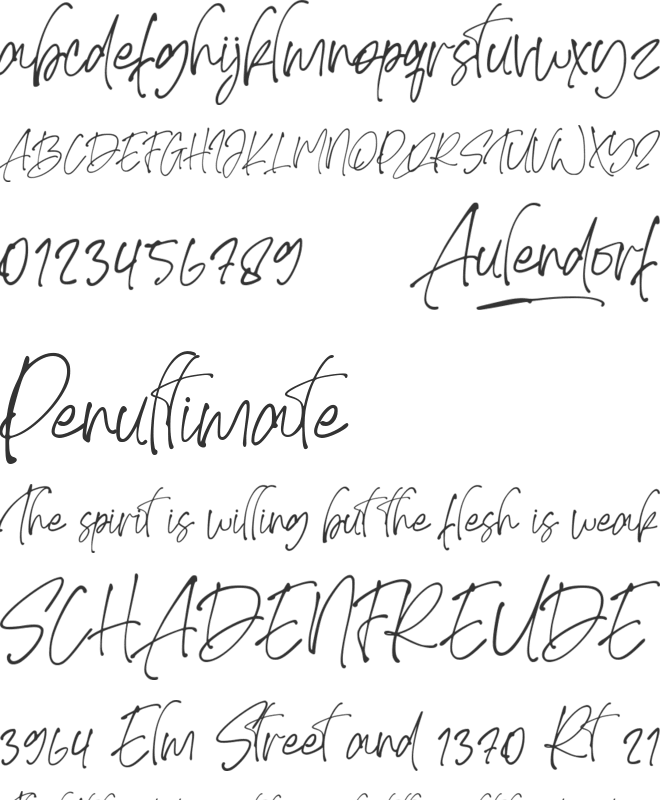 abcdefghijklmnopqrstuvwxyz
ABCDEFGHIJKLMNOPQRSTUVWXYZ
0123456789 Aulendorf
Penultimate
The spirit is willing but the flesh is weak
SCHADENFREUDE
3964 Elm Street and 1370 Rt 21